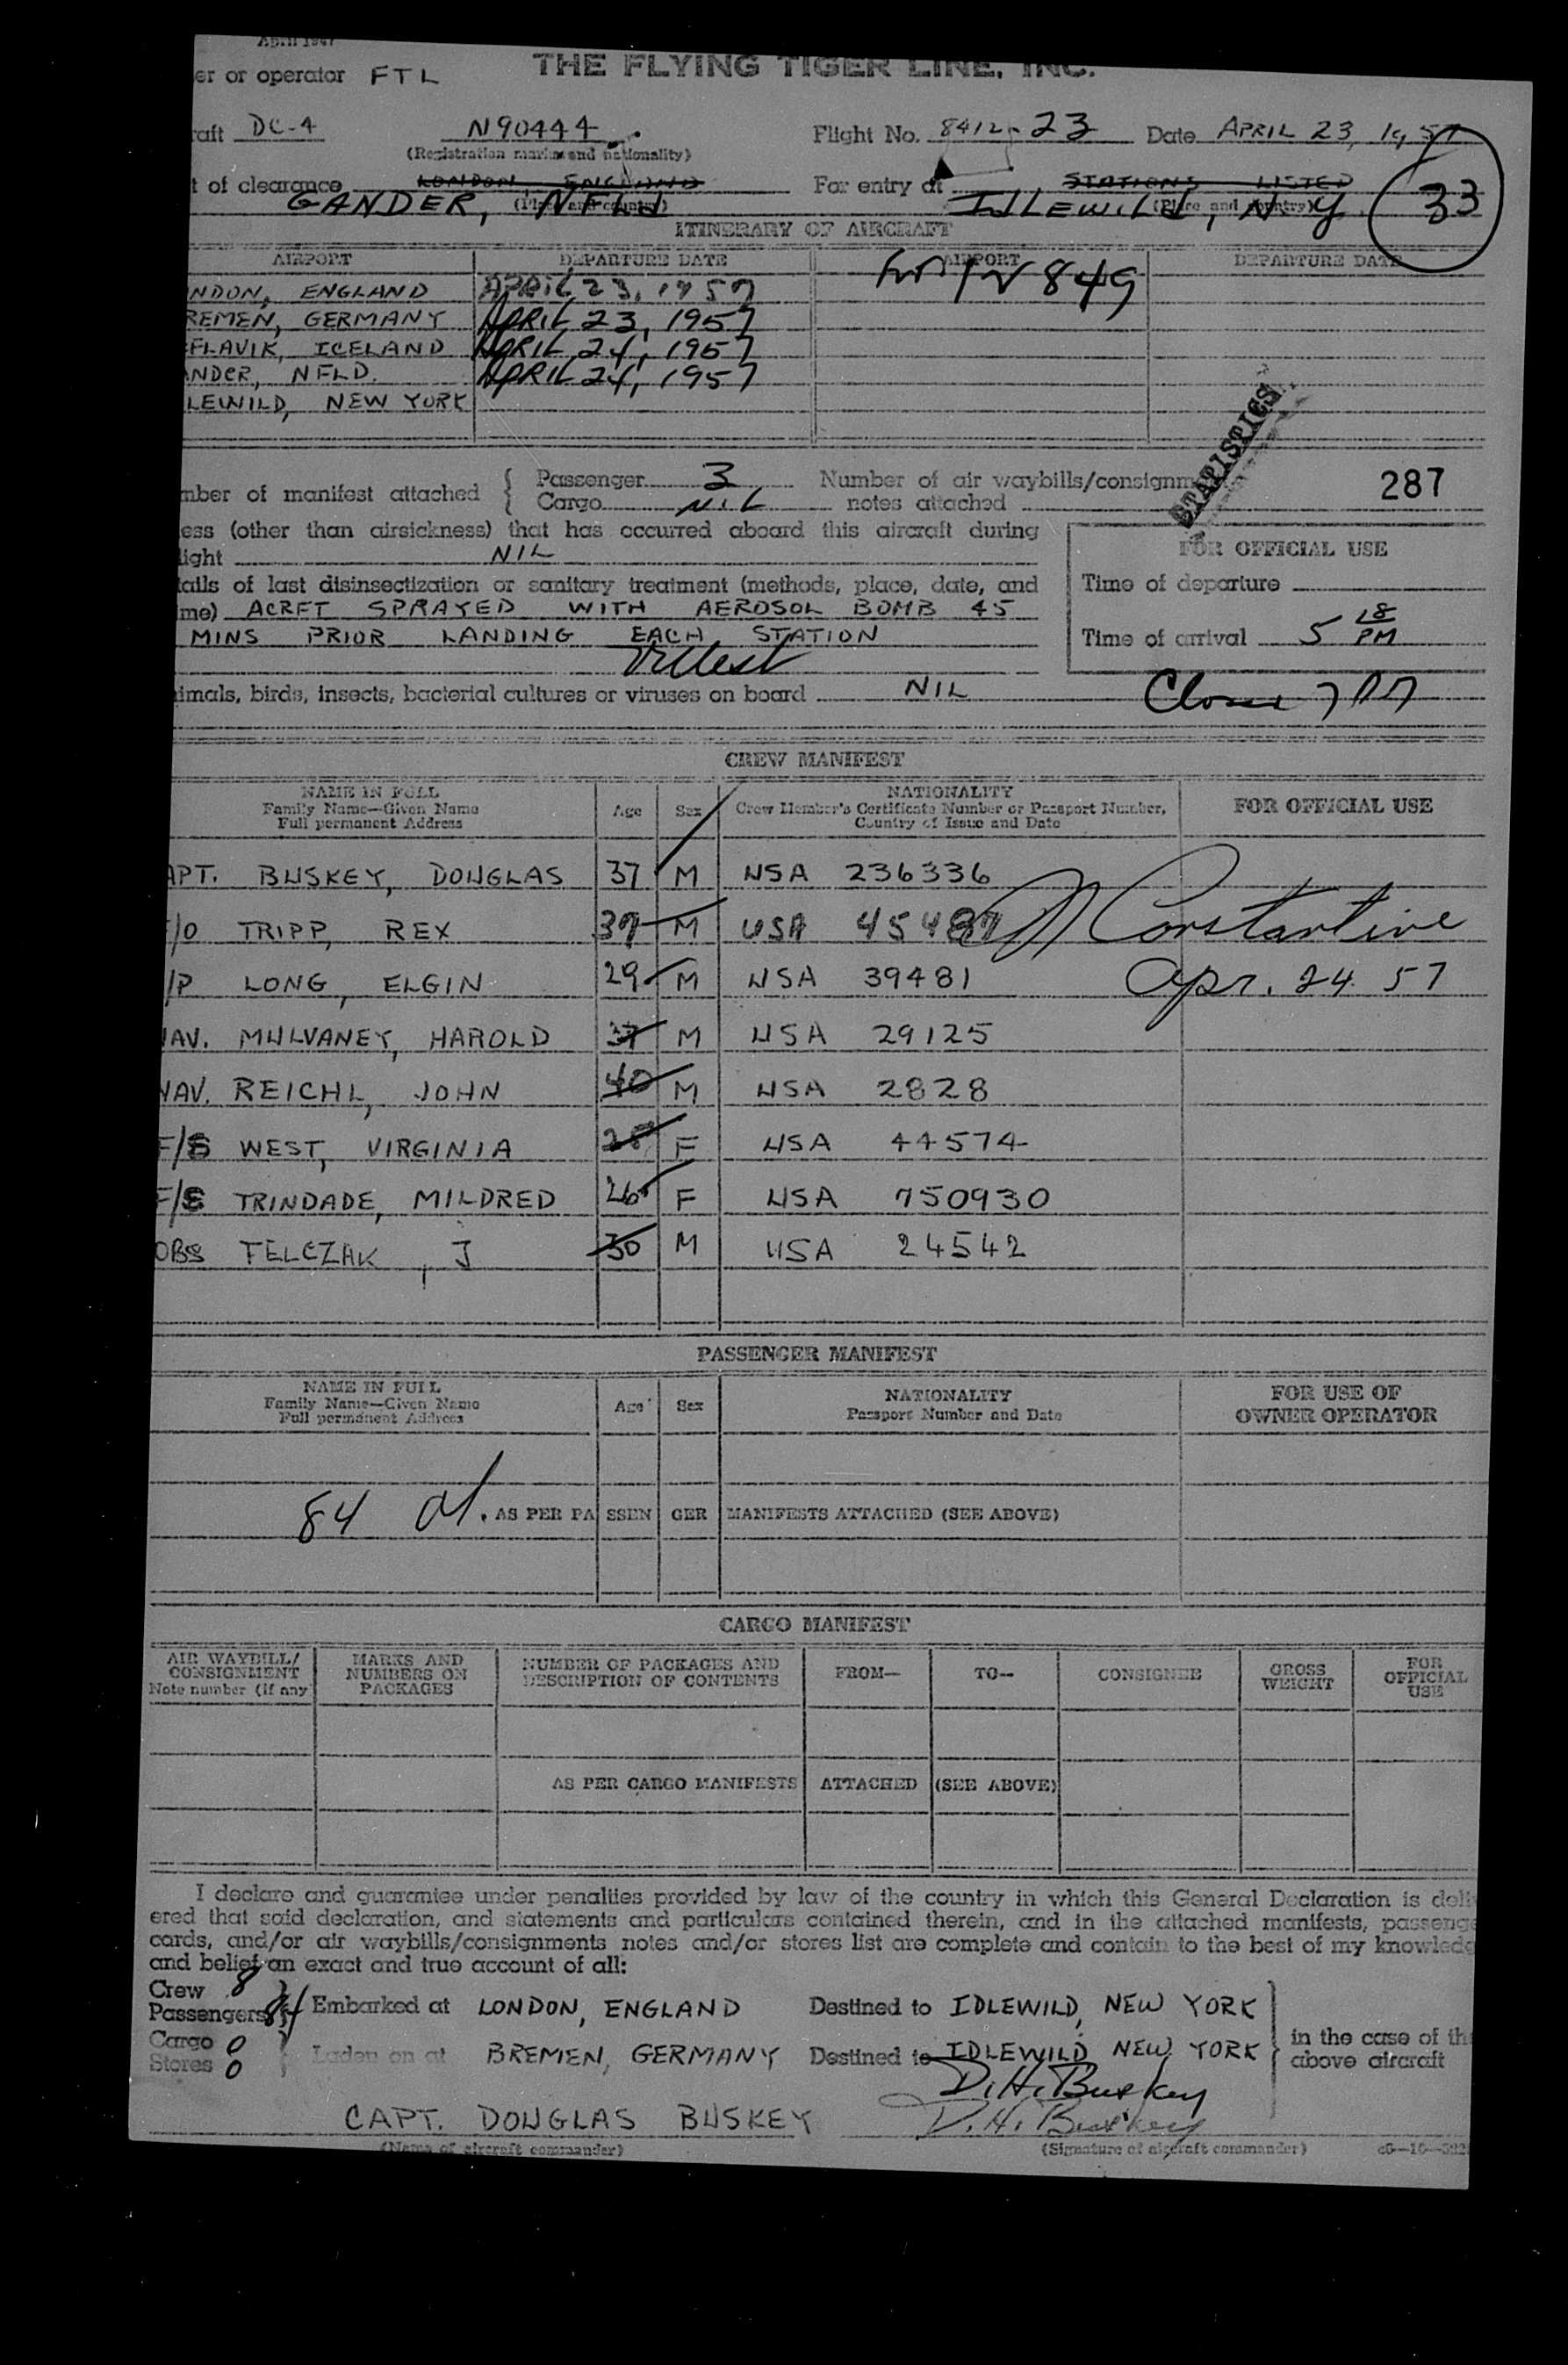 April 1947
er or operator FTL THE FLYING TIGER LINE, INC.
raft DC-4 N90444 Flight No. 8412-23 Date APRIL 23, 1957
(Registration marks and nationality)
t of clearance LONDON, ENGLAND For entry at STATIONS LISTED
GANDER, NFLD (Place and country) IDLEWILD, N.Y (Place and country) 33
ITINERARY OF AIRCRAFT
AIRPORT DEPARTURE DATE AIRPORT DEPARTURE DATE
849
NDON, ENGLAND APRIL 23, 1957
REMEN, GERMANY APRIL 23, 1957
FLAVIK, ICELAND APRIL 24, 1957
NDER, NFLD. APRIL 24, 1957
LEWILD, NEW YORK
STATISTICS
mber of manifest attached { Passenger 3 Number of air waybills/consignm 287
Cargo NIL notes attached
ess (other than airsickness) that has occurred aboard this aircraft during
light NIL FOR OFFICIAL USE
tails of last disinsectization or sanitary treatment (methods, place, date, and Time of departure
me) ACRFT SPRAYED WITH AEROSOL BOMB 45
MINS PRIOR LANDING EACH STATION Time of arrival 5 18 PM
VWest
nimals, birds, insects, bacterial cultures or viruses on board NIL
CREW MANIFEST
NAME IN FULL Age Sex NATIONALITY FOR OFFICIAL USE
Family Name—Given Name Crew Member's Certificate Number or Passport Number,
Full permanent Address Country of Issue and Date
APT. BUSKEY, DOUGLAS 37 M USA 236336
/O TRIPP, REX 37 M USA 45487 Constantine
/P LONG, ELGIN 29 M USA 39481 Apr. 24 57
NAV. MULVANEY, HAROLD 37 M USA 29125
NAV. REICHL, JOHN 40 M USA 2828
F/S WEST, VIRGINIA 28 F USA 44574
F/S TRINDADE, MILDRED 26 F USA 750930
OBS TELCZAK, J 30 M USA 24542
PASSENGER MANIFEST
NAME IN FULL Age Sex NATIONALITY FOR USE OF
Family Name—Given Name Passport Number and Date OWNER OPERATOR
Full permanent Address
84 AS PER PASSENGER MANIFESTS ATTACHED (SEE ABOVE)
CARGO MANIFEST
AIR WAYBILL/ MARKS AND NUMBER OF PACKAGES AND FROM— TO— CONSIGNEE GROSS FOR
CONSIGNMENT NUMBERS ON DESCRIPTION OF CONTENTS WEIGHT OFFICIAL
Note number (if any PACKAGES USE
AS PER CARGO MANIFESTS ATTACHED (SEE ABOVE)
I declare and guarantee under penalties provided by law of the country in which this General Declaration is deliv
ered that said declaration, and statements and particulars contained therein, and in the attached manifests, passenge
cards, and/or air waybills/consignments notes and/or stores list are complete and contain to the best of my knowledg
and belief an exact and true account of all:
Crew 8
Passengers 84 } Embarked at LONDON, ENGLAND Destined to IDLEWILD, NEW YORK
Cargo 0 in the case of th
Stores 0 } Laden on at BREMEN, GERMANY Destined to IDLEWILD NEW YORK above aircraft
D.H. Buskey
CAPT. DOUGLAS BUSKEY D.H. Buskey
(Name of aircraft commander) (Signature of aircraft commander)